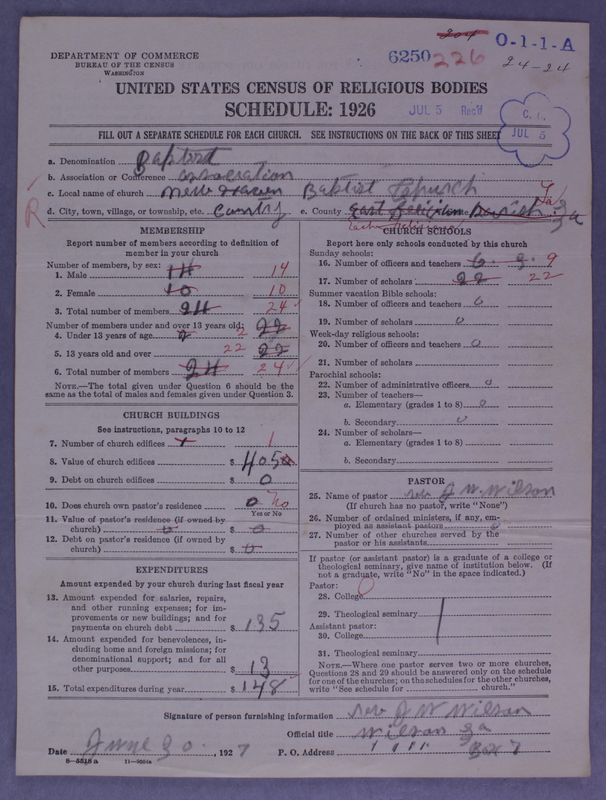 DEPARTMENT OF COMMERCE
BUREAU OF THE CENSUS
WASHINGTON
204
6250 226
O-1-1-A
24-24
UNITED STATES CENSUS OF RELIGIOUS BODIES
SCHEDULE: 1926
JUL 5 Rec'd
JUL 5
FILL OUT A SEPARATE SCHEDULE FOR EACH CHURCH. SEE INSTRUCTIONS ON THE BACK OF THIS SHEET
a. Denomination Baptist
b. Association or Conference association
c. Local name of church New Haven Baptist Church
d. City, town, village, or township, etc. Country e. County
R
MEMBERSHIP
Report number of members according to definition of member in your church
Number of members, by sex:
1. Male 14 14
2. Female 10 10
3. Total number of members 24 24
Number of members under and over 13 years old:
4. Under 13 years of age 2 2 22
5. 13 years old and over 22 22
6. Total number of members 24 24
NOTE.—The total given under Question 6 should be the
same as the total of males and females given under Question 3.
CHURCH BUILDINGS
See instructions, paragraphs 10 to 12
7. Number of church edifices 1 1
8. Value of church edifices $ 4050
9. Debt on church edifices $ 0
10. Does church own pastor's residence 0 No
Yes or No
11. Value of pastor's residence (if owned by
church) 0 $ 0
12. Debt on pastor's residence (if owned by
church) $ 0
EXPENDITURES
Amount expended by your church during last fiscal year
13. Amount expended for salaries, repairs,
and other running expenses; for im-
provements or new buildings; and for
payments on church debt $ 135
14. Amount expended for benevolences, in-
cluding home and foreign missions; for
denominational support; and for all
other purposes $ 13
15. Total expenditures during year $ 148
CHURCH SCHOOLS
Report here only schools conducted by this church
Sunday schools:
16. Number of officers and teachers 6 3 9
17. Number of scholars 22 22
Summer vacation Bible schools:
18. Number of officers and teachers 0
19. Number of scholars 0
Week-day religious schools:
20. Number of officers and teachers 0
21. Number of scholars
Parochial schools:
22. Number of administrative officers 0
23. Number of teachers—
a. Elementary (grades 1 to 8) 0
b. Secondary 0
24. Number of scholars—
a. Elementary (grades 1 to 8)
b. Secondary
PASTOR
25. Name of pastor rev J W. Wilson
(If church has no pastor, write "None")
26. Number of ordained ministers, if any, em-
ployed as assistant pastors 0
27. Number of other churches served by the
pastor or his assistants
If pastor (or assistant pastor) is a graduate of a college or
theological seminary, give name of institution below. (If
not a graduate, write "No" in the space indicated.)
Pastor:
28. College 0
29. Theological seminary
Assistant pastor:
30. College
31. Theological seminary
NOTE.—Where one pastor serves two or more churches,
Questions 28 and 29 should be answered only on the schedule
for one of the churches; on the schedules for the other churches,
write "See schedule for church."
Signature of person furnishing information rev J W Wilson
Official title Wilson
Date June 30, 1927 P. O. Address " " " " Box 7
8—5518 a 11—9024a